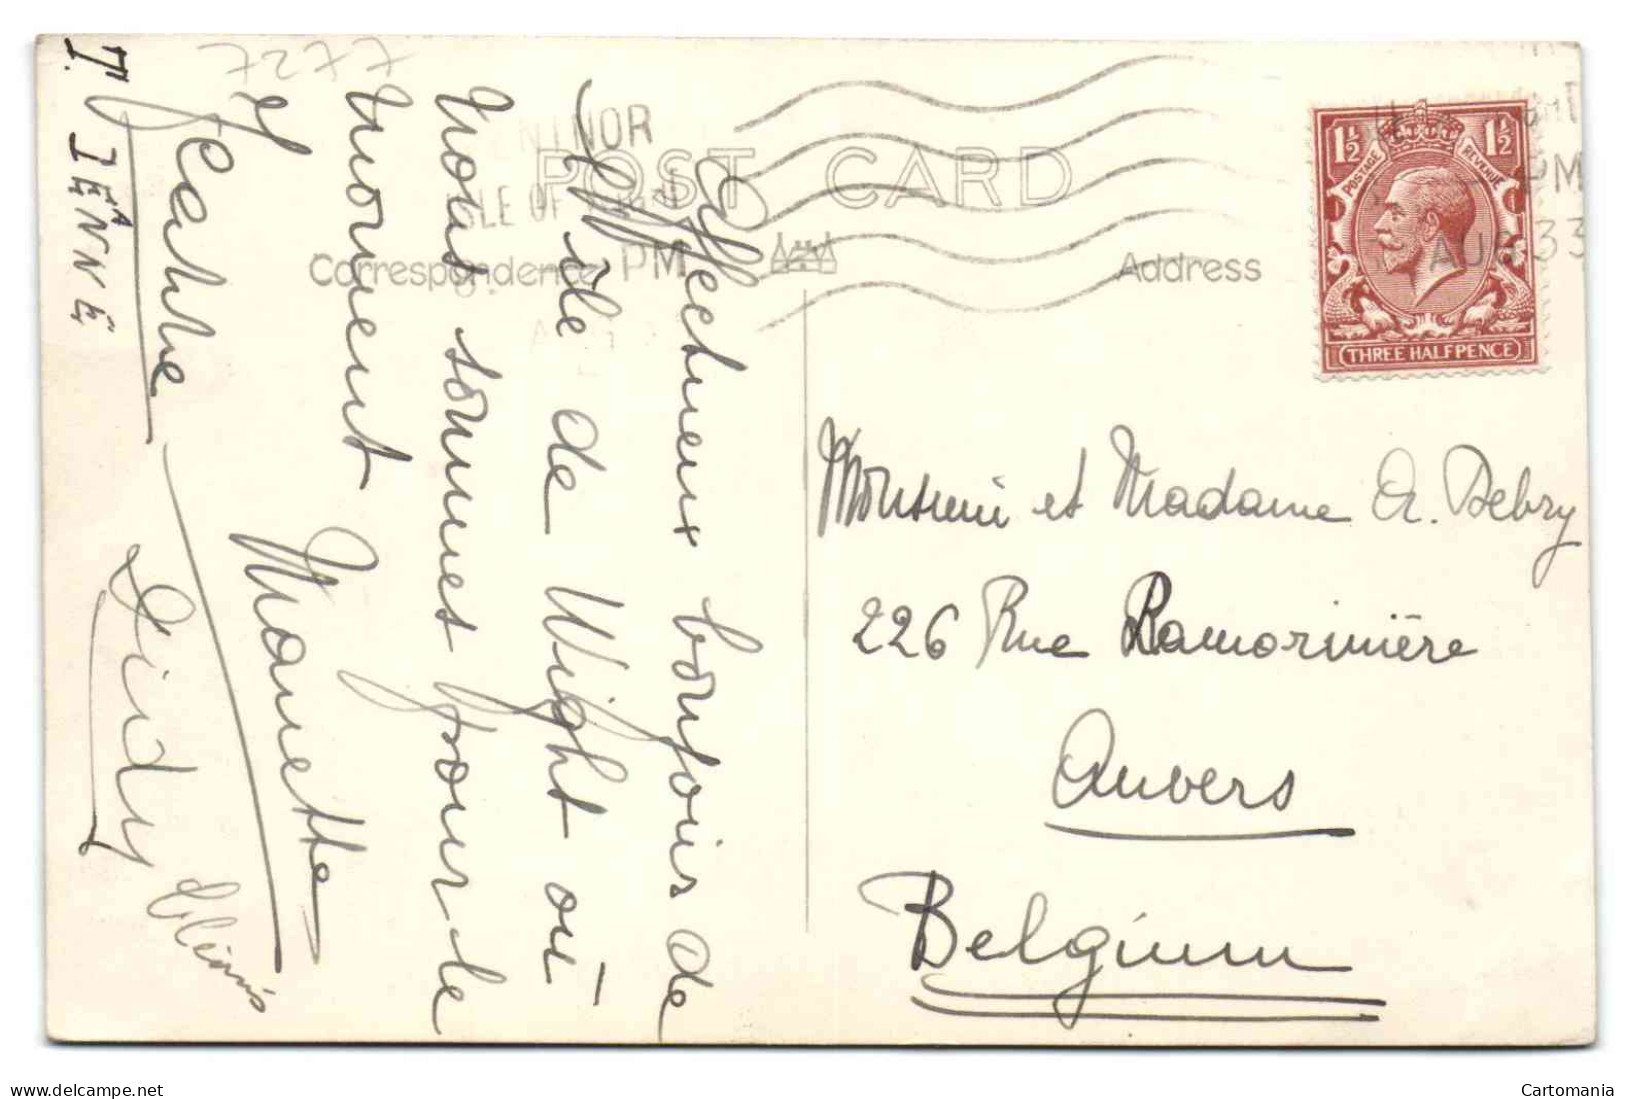 POST CARD
Correspondence
Address
NINOR
ISLE OF
PM
PM
AUG 33
1½ 1½
POSTAGE REVENUE
THREE HALFPENCE
Affectueux bonjours de
l'île de Wight où
nous sommes pour le
moment
Manette
Didy
J. JEANNE
Monsieur et Madame A. Debry
226 Rue Lamorinière
Anvers
Belgium
www.delcampe.net
Cartomania